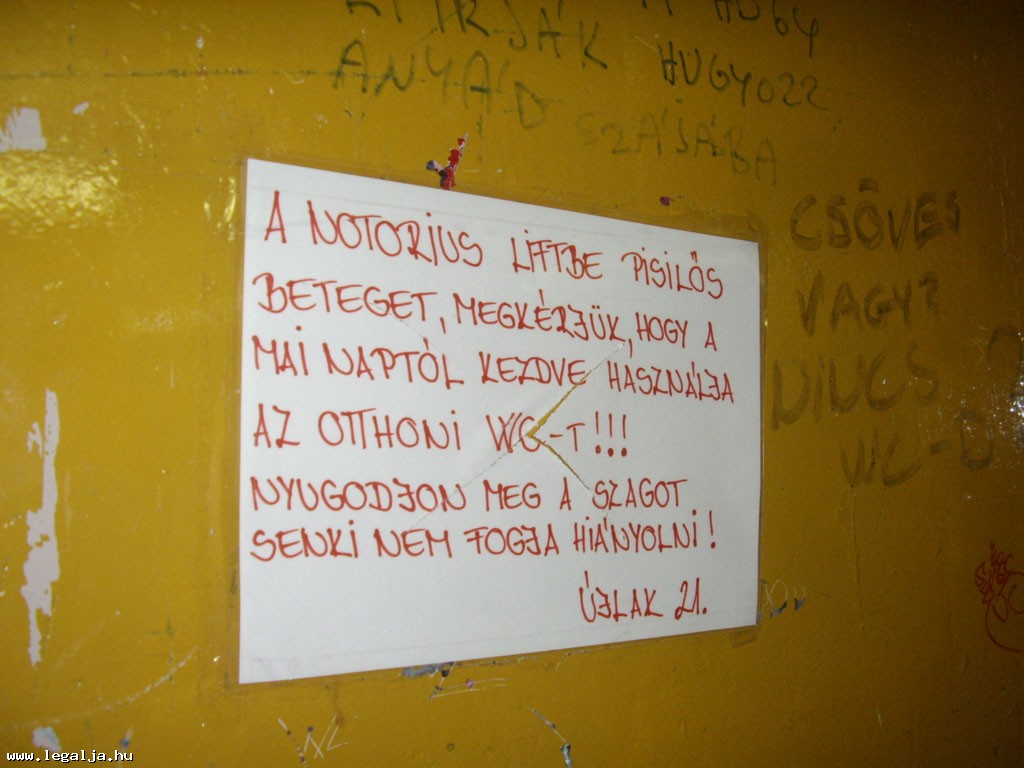 HOGY
ÍRJÁK HUGYOZZ
ANYÁD SZÁJÁBA
CSÖVES
VAGY?
NINCS
WC-D
A NOTORIUS LIFTBE PISILŐS
BETEGET, MEGKÉRJÜK, HOGY A
MAI NAPTÓL KEZDVE HASZNÁLJA
AZ OTTHONI WC-T!!!
NYUGODJON MEG A SZAGOT
SENKI NEM FOGJA HIÁNYOLNI!
ÚJLAK 21.
www.legalja.hu